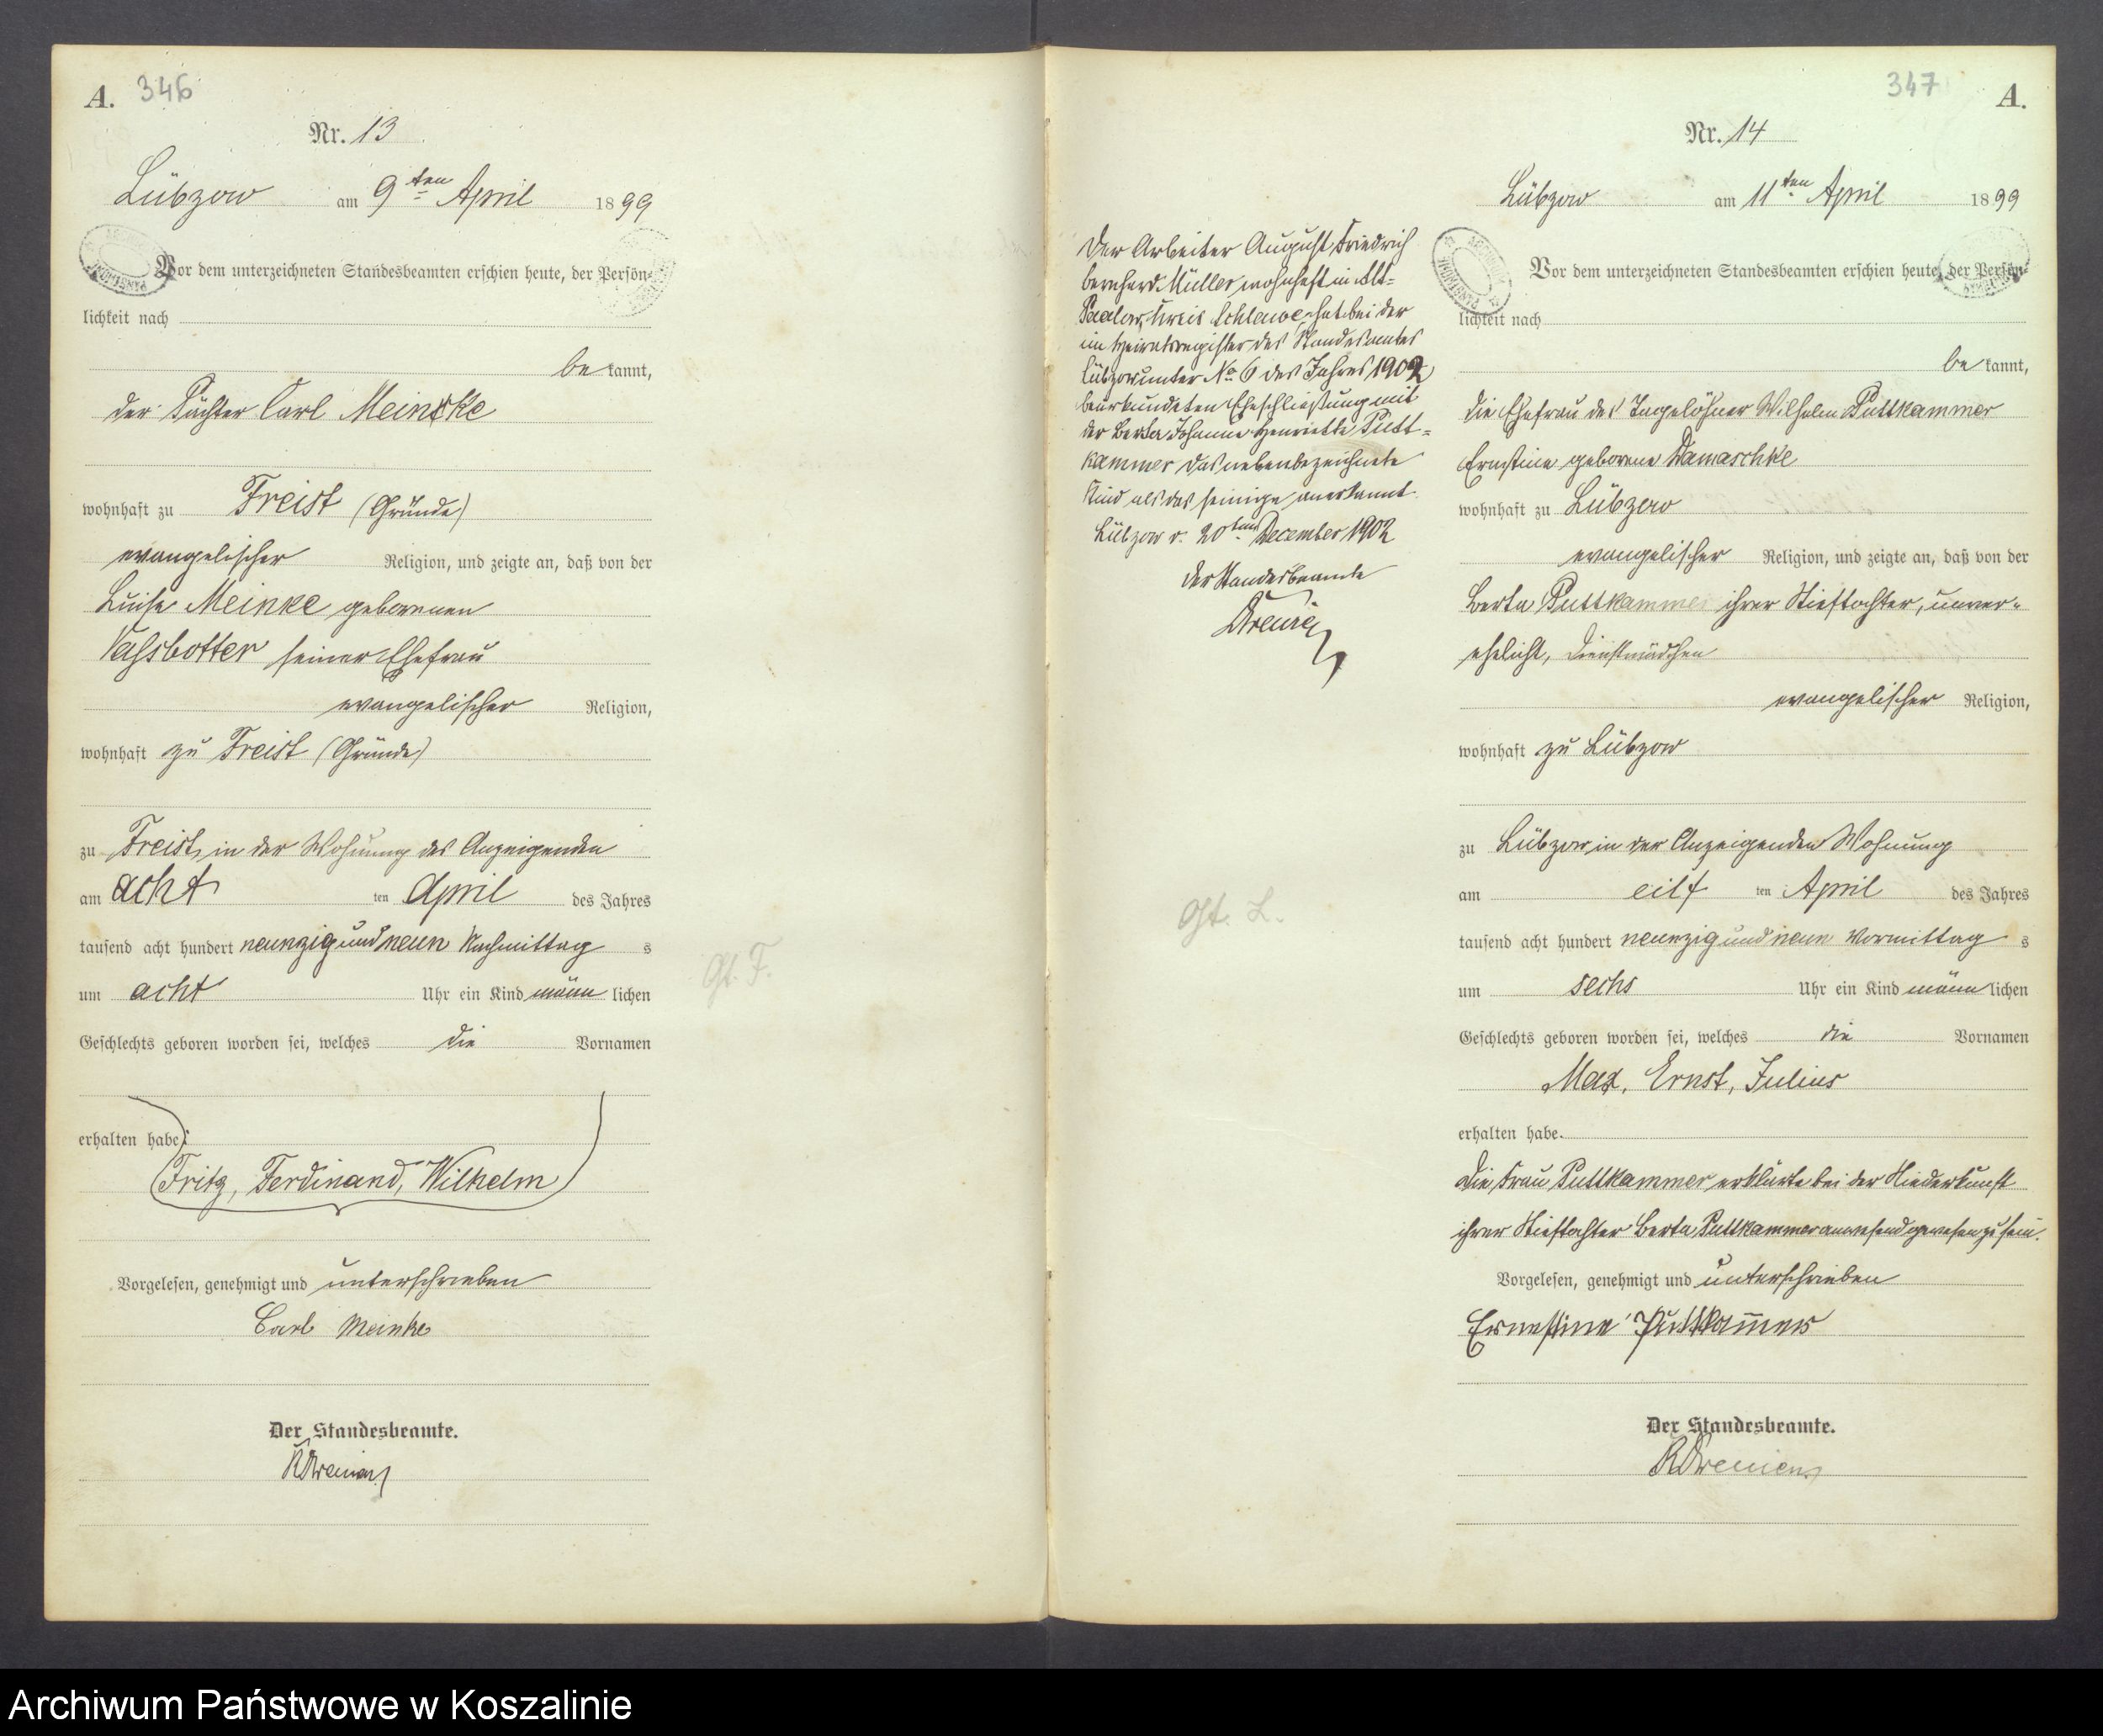 A. 346
Nr. 13
Lübzow am 9ten April 1899
Vor dem unterzeichneten Standesbeamten erschien heute, der Persön-
lichkeit nach
be kannt,
der Pächter Carl Meincke
wohnhaft zu Freist (Gründe)
evangelischer Religion, und zeigte an, daß von der
Luise Meinke geborenen
Vahsbotter seiner Ehefrau
evangelischer Religion,
wohnhaft zu Freist (Gründe)
zu Freist, in der Wohnung des Anzeigenden
am acht ten April des Jahres
tausend acht hundert neunzig und neun Nachmittag s
um acht Uhr ein Kind männ lichen
Geschlechts geboren worden sei, welches die Vornamen
erhalten habe:
Fritz, Ferdinand, Wilhelm
Vorgelesen, genehmigt und unterschrieben
Carl Meinke
Der Standesbeamte.
Gst. F.
347 A.
Nr. 14
Lübzow am 11ten April 1899
Vor dem unterzeichneten Standesbeamten erschien heute, der Persön-
lichkeit nach
be kannt,
die Ehefrau des Tagelöhner Wilhelm Puttkammer
Ernstine geborene Damaschke
wohnhaft zu Lübzow
evangelischer Religion, und zeigte an, daß von der
Berta Puttkammer ihrer Stieftochter, unver-
ehelicht, Dienstmädchen
evangelischer Religion,
wohnhaft zu Lübzow
zu Lübzow in der Anzeigenden Wohnung
am eilf ten April des Jahres
tausend acht hundert neunzig und neun Vormittag s
um sechs Uhr ein Kind männ lichen
Geschlechts geboren worden sei, welches die Vornamen
Max, Ernst, Julius
erhalten habe.
Die Frau Puttkammer erklärte bei der Niederkunft
ihrer Stieftochter Berta Puttkammer anwesend gewesen zu sein.
Vorgelesen, genehmigt und unterschrieben
Ernestine Puttkam̅er
Der Standesbeamte.
Der Arbeiter August Friedrich
Bernhard Müller wohnhaft in Alt-
Kreis Schlawe, hat bei der
im Heiratsregister des Standesamtes
Lübzow unter No 6 des Jahres 1902
beurkundeten Eheschließung mit
der Berta Johanne Henriette Putt-
kammer das nebenbezeichnete
Kind als das seinige anerkannt.
Lübzow d. 20ten December 1902
Der Standesbeamte
Gst. L.
Archiwum Państwowe w Koszalinie